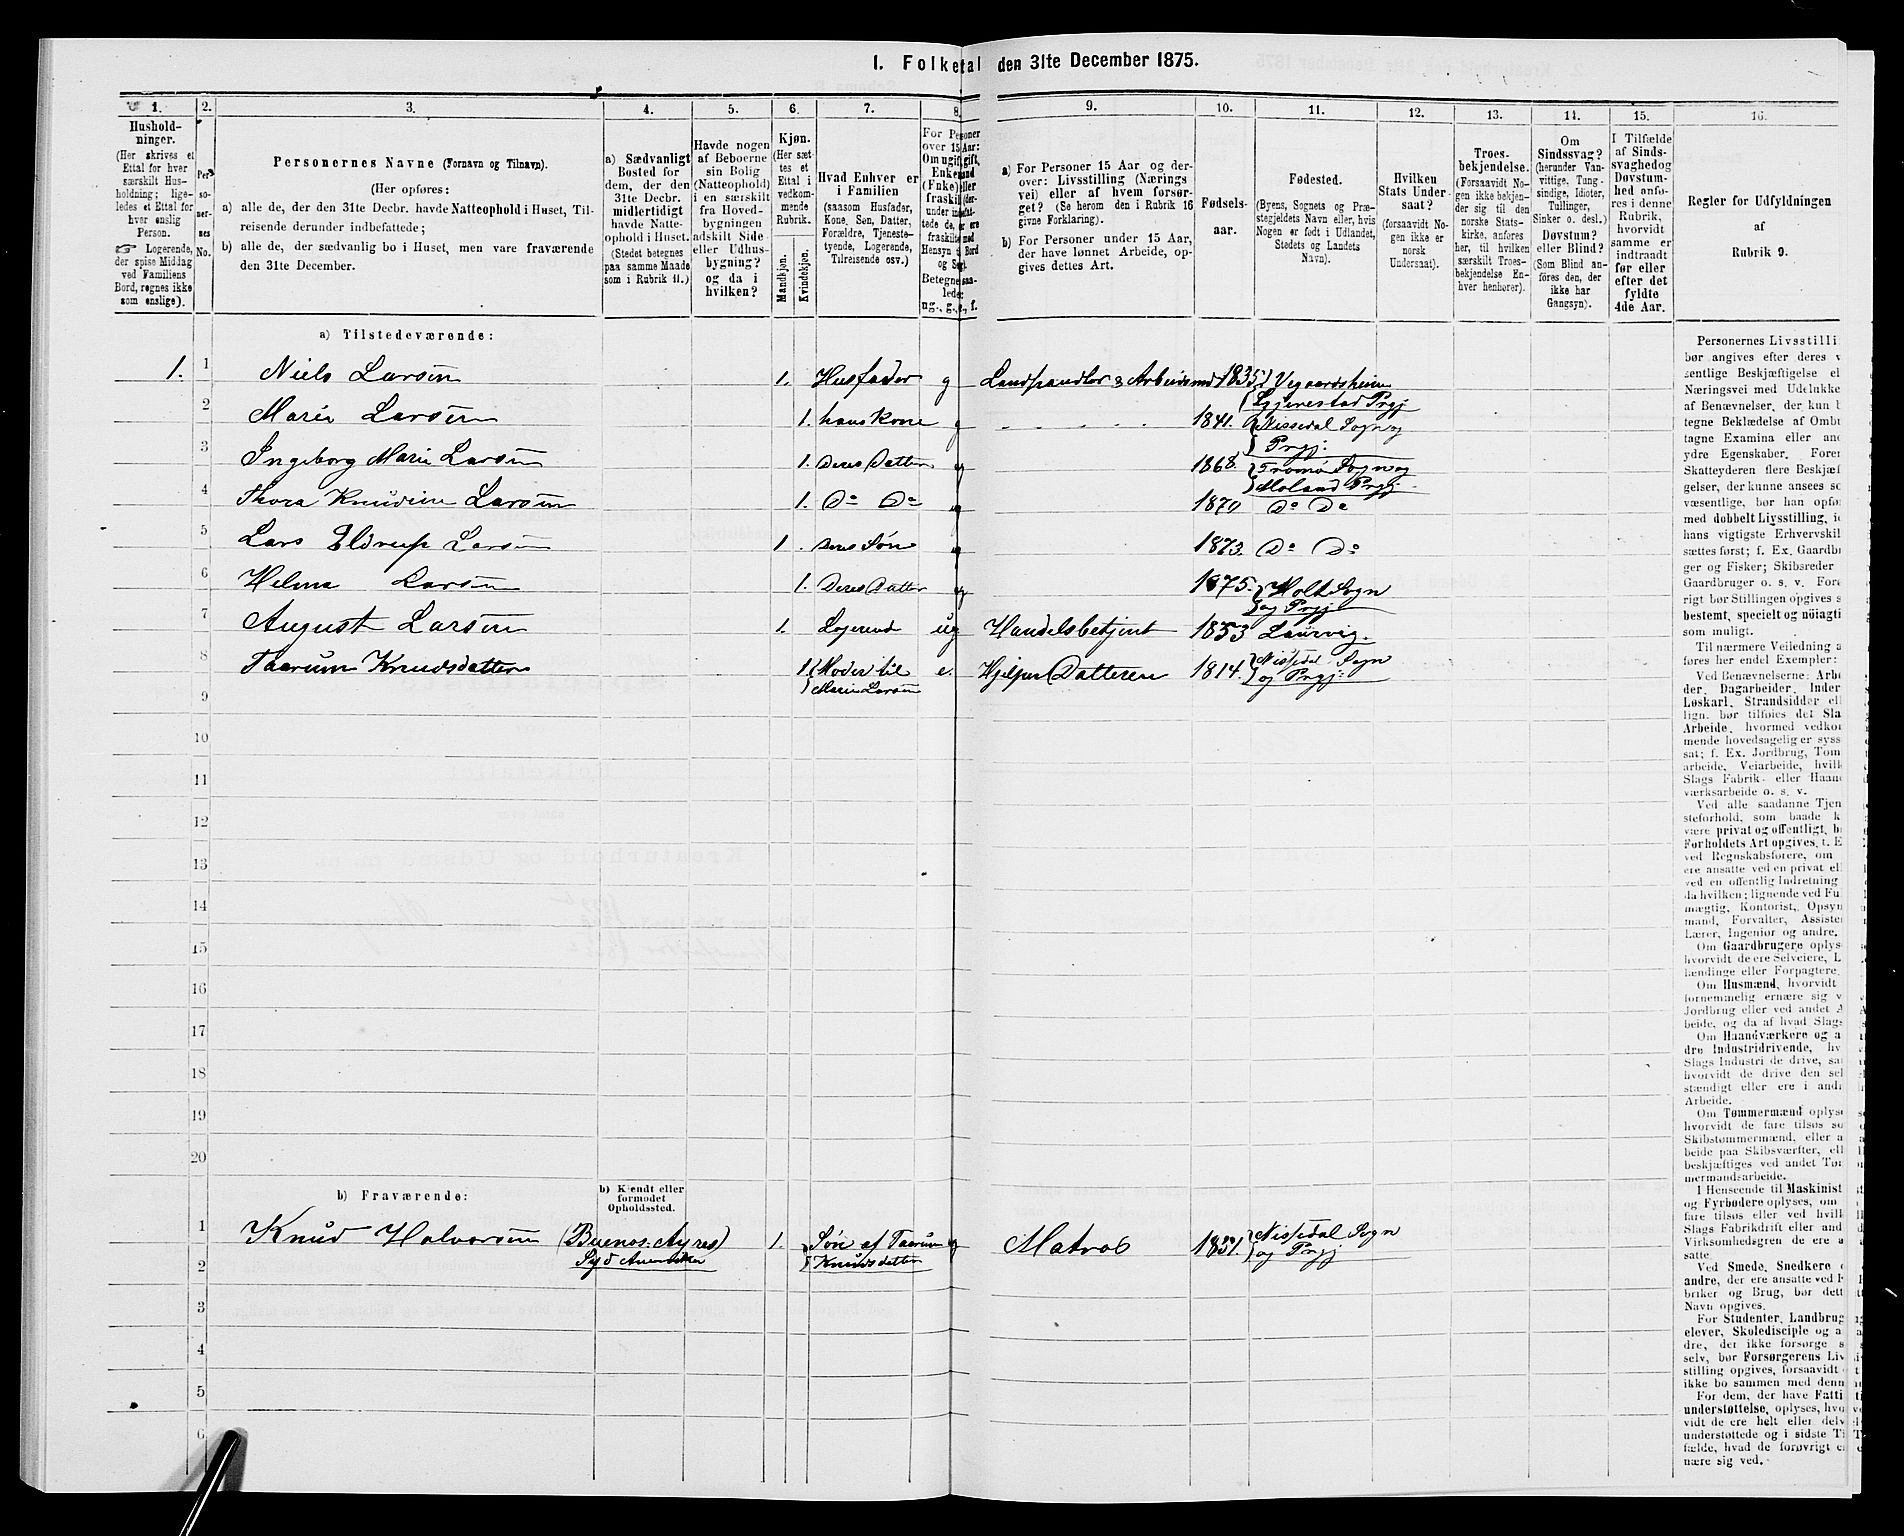 1. Folketal den 31te December 1875.
1. 2. 3. 4. 5. 6. 7. 8. 9. 10. 11. 12. 13. 14. 15. 16.
Hushold-
ninger.
(Her skrives et
Ettal for hver
særskilt Hus-
holdning; lige-
ledes et Ettal for
hver enslig
Person.
☞ Logerende,
der spise Middag
ved Familiens
Bord, regnes ikke
som enslige).
Per-
so-
ner-
nes
No.
Personernes Navne (Fornavn og Tilnavn).
(Her opføres:
a) alle de, der den 31te Decbr. havde Natteophold i Huset, Til-
reisende derunder indbefattede;
b) alle de, der sædvanlig bo i Huset, men vare fraværende
den 31te December.
a) Sædvanligt
Bosted for
dem, der den
31te Decbr.
midlertidigt
havde Natte-
ophold i Huset.
(Stedet betegnes
paa samme Maade
som i Rubrik 11.)
Havde nogen
af Beboerne
sin Bolig
(Natteophold)
i en særskilt
fra Hoved-
bygningen
adskilt Side-
eller Udhus-
bygning?
og da i
hvilken?
Kjøn.
(Her sæt-
tes et
Ettal i
vedkom-
mende
Rubrik.
Mandkjøn.
Kvindekjøn.
Hvad Enhver er
i Familien
(saasom Husfader,
Kone, Søn, Datter,
Forældre, Tjeneste-
tyende, Logerende,
Tilreisende osv.)
For Personer
over 15 Aar:
Om ugift, gift,
Enkemand
(Enke) eller
fraskilt
Betegnes saa-
ledes:
ug., g., e., f.
a) For Personer 15 Aar og der-
over: Livsstilling (Nærings
vei) eller af hvem forsør-
get? (Se herom den i Rubrik 16
givne Forklaring).
b) For Personer under 15 Aar,
der have lønnet Arbeide, op-
gives dettes Art.
Fødsels-
aar.
Fødested.
(Byens, Sognets og Præ-
stegjeldets Navn eller, hvis
Nogen er født i Udlandet,
Stedets og Landets
Navn).
Hvilken
Stats Under-
saat?
(forsaavidt No-
gen ikke er
norsk
Undersaat).
Troes-
bekjendelse.
(Forsaavidt No-
gen ikke bekjen-
der sig til den
norske Stats-
kirke, anføres
her, til hvilken
særskilt Troes-
bekjendelse En-
hver henhører).
Om
Sindssvag?
(herunder Van-
vittige, Tung-
sindige, Idioter,
Tullinger,
Sinker o. desl.)
Døvstum?
eller Blind?
(Som Blind an-
føres den, der
ikke har
Gangsyn).
I Tilfælde
af Sinds-
svaghed og
Døvstum-
hed anfø-
res i denne
Rubrik,
hvorvidt
samme er
indtraadt
før eller
efter det
fyldte
4de Aar.
Regler for Udfyldningen
af
Rubrik 9.
a) Tilstedeværende:
1. 1 Niels Larsen 1. Husfader g Landhandler & Arbeidsmd 1835 Vegaardsheim
Gjerestad Prgj
2 Marie Larsen 1. hans Kone g 1841. Nissedal Sogn og
Prgj:
3 Ingeborg Marie Larsen 1. Deres Datter ug 1868. Tromø Sogn og
Moland Prgj.
4 Thora Knudine Larsen 1. Do Do ug 1870 Do Do
5 Lars Eldrup Larsen 1. Deres Søn ug 1873. Do Do
6 Helma Larsen 1. Deres Datter ug 1875. Holt Sogn
og Prgj
7 August Larsen 1. Logerend ug Handelsbetjent 1853 Laurvig.
8 Taarum Knudsdatter 1. Moder til e. Hjelper Datteren 1814. Nissedal Sogn
Marie Larsen og Prgj:
9
10
11
12
13
14
15
16
17
18
19
20
b) Fraværende:
b) Kjendt eller
formodet
Opholdssted.
1 Knud Halvorsen (Buenos-Ayres) 1. Søn af Taarum ug Matros 1851. Nissedal Sogn
2 Syd Amerika Knudsdatter og Prgj
3
4
5
6
Personernes Livsstilli
bør angives efter deres v
sentlige Beskjæftigelse el
Næringsvei med Udelukke
af Benævnelser, der kun b
tegne Beklædelse af Ombu
tagne Examina eller and
ydre Egenskaber. Foren
Skatteyderen flere Beskjæf
gelser, der kunne ansees so
væsentlige, bør han opfør
med dobbelt Livsstilling, id
hans vigtigste Erhvervskil
sættes først; f. Ex. Gaardbr
ger og Fisker; Skibsreder
Gaardbruger o. s. v. Fore
rigt bør Stillingen opgives s
bestemt, specielt og nöiagti
som muligt.
Til nærmere Veiledning a
føres her endel Exempler:
Ved Benævnelserne: Arbe
der, Dagarbeider, Inder
Løskarl, Strandsidder ell
lign. bør tilføies det Sla
Arbeide, hvormed vedkom
mende hovedsagelig er syss
sat; f. Ex. Jordbrug, Tom
arbeide, Veiarbeide, hvilk
Slags Fabrik- eller Haand
værksarbeide o. s. v.
Ved alle saadanne Tjen
steforhold, som baade k
være privat og offentligt, b
Forholdets Art opgives, t. E
ved Regnskabsførere, om
ere ansatte ved en privat ell
ved en offentlig Indretning
da hvilken; lignende ved Fu
mægtig, Kontorist, Opsyn
mand, Forvalter, Assisten
Lærer, Ingeniør og andre.
Om Gaardbrugere oplyse
hvorvidt de ere Selveiere, L
lændinge eller Forpagtere.
Om Husmænd, hvorvidt
fornemmelig ernære sig v
Jordbrug eller ved andet A
beide, og da af hvad Slags
Om Haandværkere og a
dre Industridrivende, hv
Slags Industri de drive, sa
hvorvidt de drive den sel
stændigt eller ere i andr
Arbeide.
Om Tømmermænd oplyse
hvorvidt de fare tilsøs so
Skibstømmermænd, eller a
beide paa Skibsværfter, ell
beskjæftiges ved andet Tøm
mermandsarbeide.
I Henseende til Maskinist
og Fyrbødere oplyses, om
fare tilsøs eller ved hvilk
Slags Fabrikdrift eller and
Virksomhedsgren de ere a
satte.
Ved Smede, Snedkere o
andre, der ere ansatte ved F
briker og Brug, bør dett
Navn opgives.
For Studenter, Landbrug
elever, Skoledisciple og a
dre, der ikke forsørge s
selv, bør Forsørgerens Liv
stilling opgives, forsaavidt
ikke bo sammen med denn
For dem, der have Fatti
understøttelse, oplyses, hvo
vidt de ere helt eller delv
understøttede og i sidste Ti
fælde, hvad de forøvrigt e
nære sig ved.